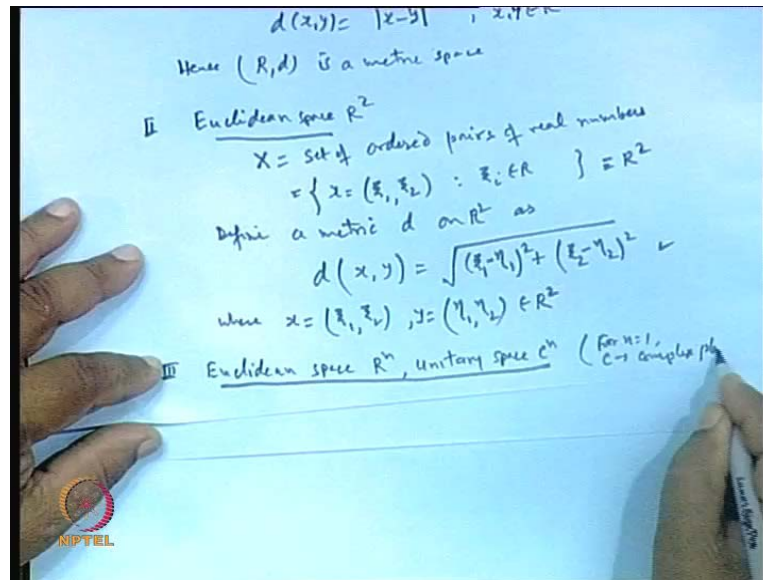 d(x,y) = |x-y| , x,y ∈ R
Hence (R,d) is a metric space
II Euclidean space R²
X = Set of ordered pairs of real numbers
= { x = (ξ₁, ξ₂) : ξᵢ ∈ R } ≡ R²
Define a metric d on R² as
d(x,y) = √((ξ₁-η₁)² + (ξ₂-η₂)²) ✓
where x = (ξ₁, ξ₂), y = (η₁, η₂) ∈ R²
III Euclidean space Rⁿ, unitary space Cⁿ (For n=1,
C → complex pl
NPTEL